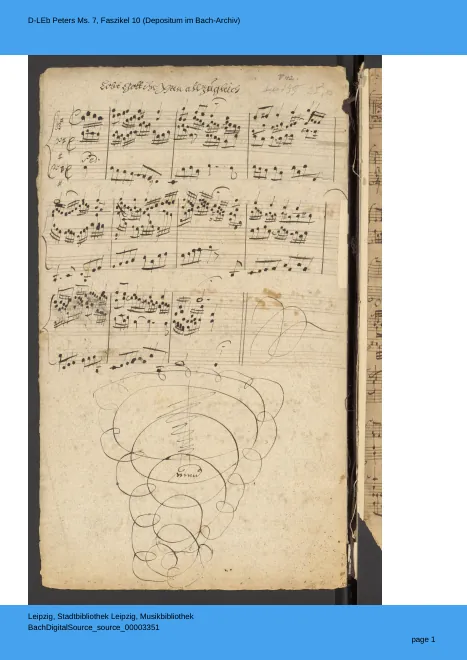 D-LEb Peters Ms. 7, Faszikel 10 (Depositum im Bach-Archiv)
Lobt Gott ihr
Leipzig, Stadtbibliothek Leipzig, Musikbibliothek
BachDigitalSource_source_00003351
page 1